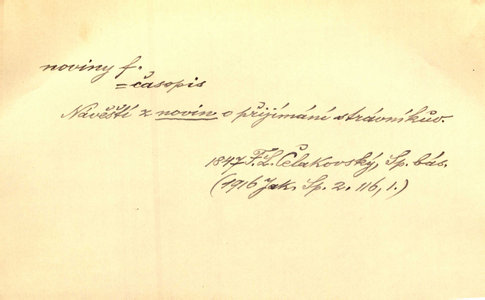 noviny f.
= časopis
Navěští z novin o přijímání strávníkův.
1847 F. L. Čelakovský, Sp. bás.
(1916 Jak. Sp. 2. 116, 1.)